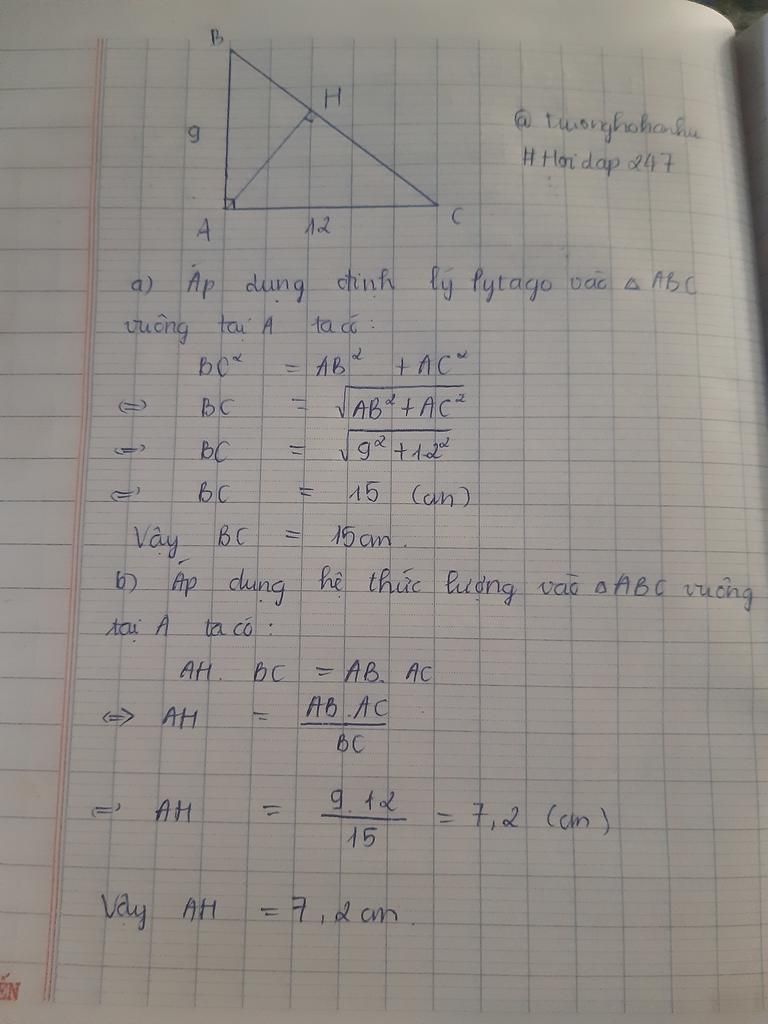 B
H
9
A
12
C
@
# Hoidap 247
a) Áp dụng định lý Pytago vào △ ABC
vuông tại A ta có :
BC² = AB² + AC²
⇔ BC = √AB² + AC²
⇔ BC = √9² + 12²
⇔ BC = 15 (cm)
Vậy BC = 15cm.
b) Áp dụng hệ thức lượng vào △ABC vuông
tại A ta có :
AH. BC = AB. AC
⇔ AH = AB.AC / BC
⇔ AH = 9.12 / 15 = 7,2 (cm)
Vậy AH = 7,2 cm.
ẾN